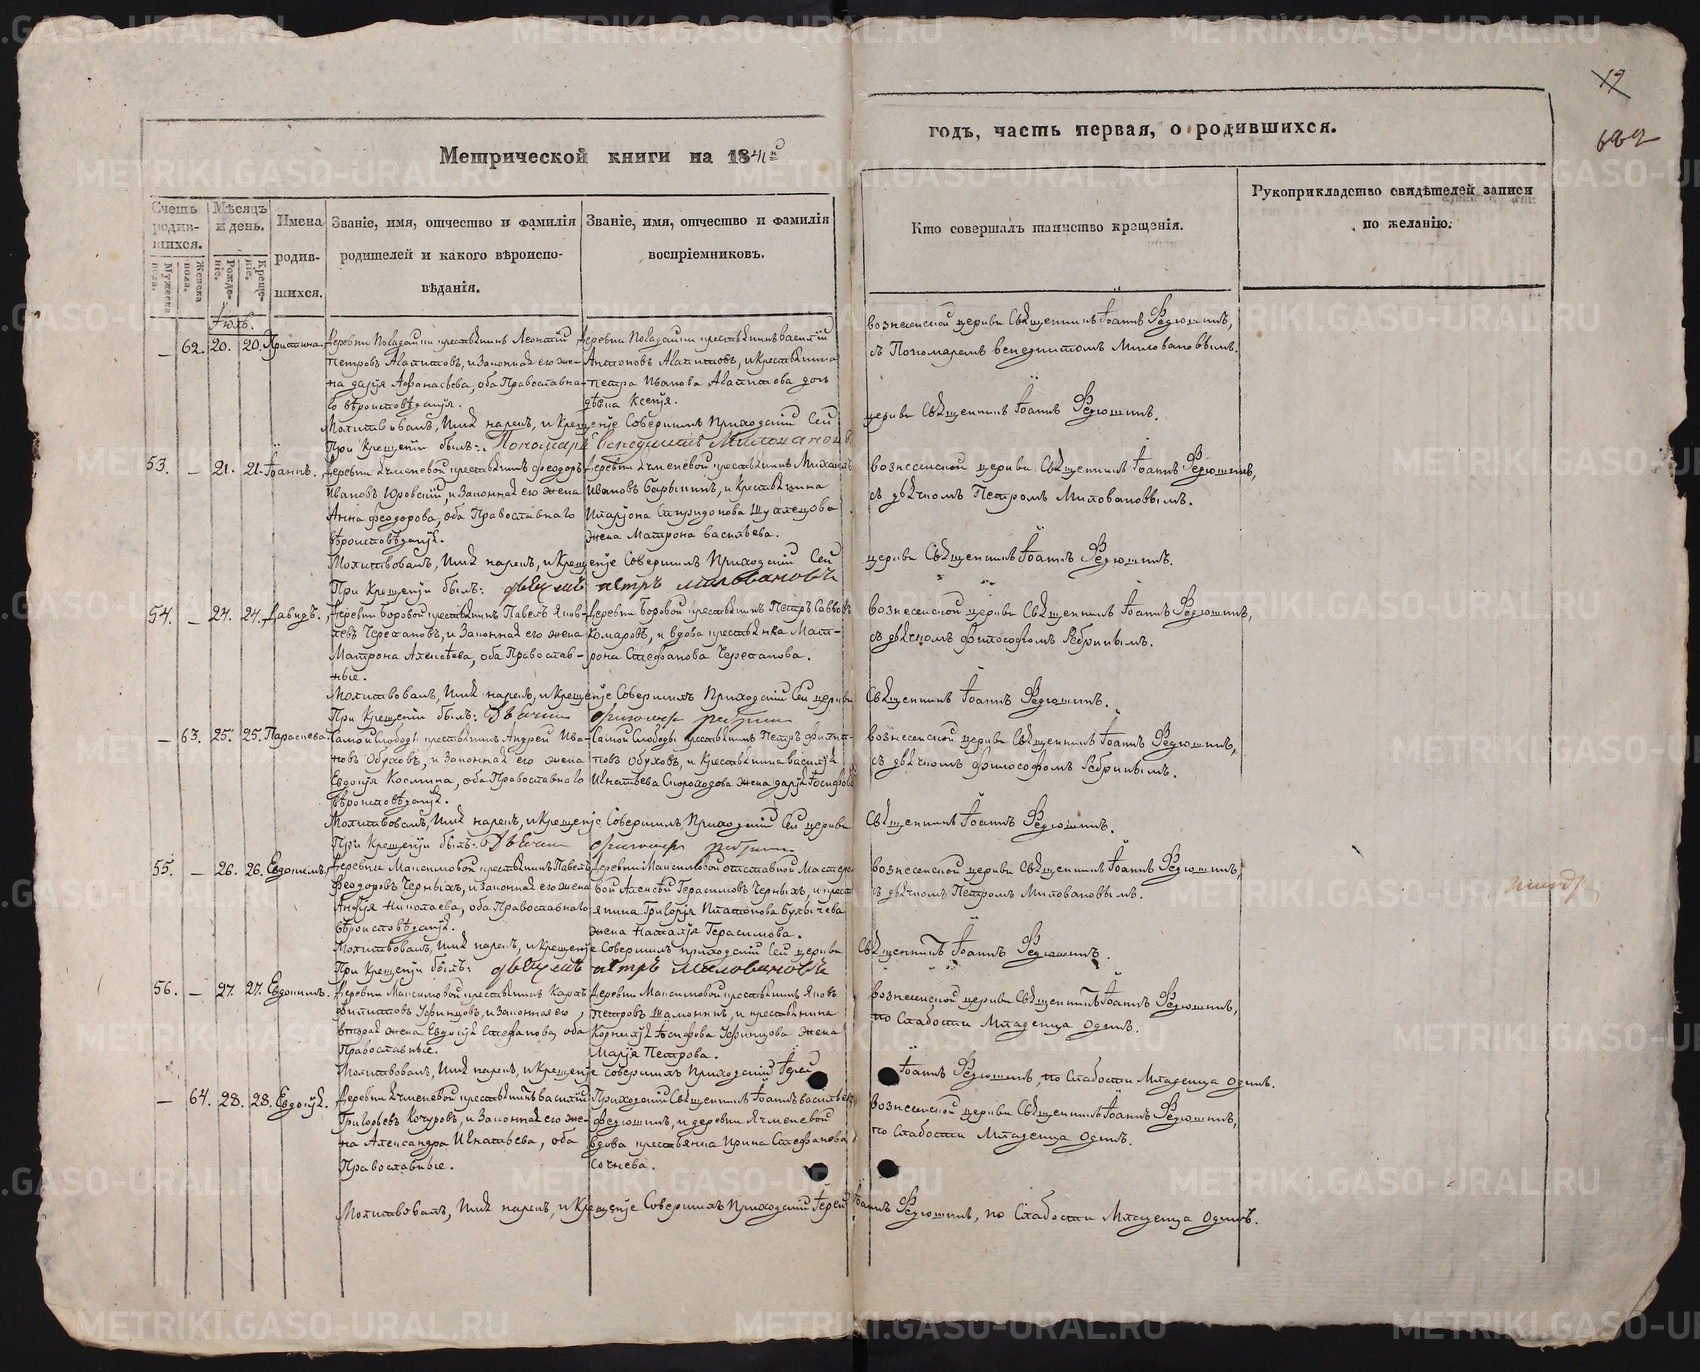 19
622
Метрической книги на 1841й
годъ, часть первая, о родившихся.
Счетъ родив-шихся.
Мужеска пола.
Женска пола.
Мѣсяцъ и день.
Рожде-нiе.
Креще-нiе.
Имена родив-шихся.
Званiе, имя, отчество и фамилiя
родителей и какого вѣроиспо-
вѣданiя.
Званiе, имя, отчество и фамилiя
воспрiемниковъ.
Кто совершалъ таинство крещенiя.
Рукоприкладство свидѣтелей записи
по желанiю.
Iюль.
— 62. 20. 20. Христина.
крестьянинъ Леонтiй
Петровъ и законная его же-
на Дарiя Афанасьева, оба Православна-
го вѣроисповѣданiя.
крестьянинъ Василiй
Антоновъ и крестьянина
Петра Иванова дочь
дѣвка Ксенiя.
Вознесенской церкви Священникъ Iоаннъ Ѳедюшинъ,
съ Пономаремъ Венедиктомъ Миловановымъ.
Молитвовалъ, Имя нарекъ, и Крещенiе Совершилъ Приходскiй Сей
церкви Священникъ Iоаннъ Ѳедюшинъ.
При Крещенiи былъ: Пономарь Венедиктъ Миловановъ
53. — 21. 21. Iоаннъ.
Деревни Ячменевой крестьянинъ Феодоръ
Ивановъ Юровскiй, и Законная его жена
Анна Феодорова, оба Православнаго
вѣроисповѣданiя.
Деревни Ячменевой крестьянинъ Михаилъ
Ивановъ и крестьянина
Иларiона Спиридонова
жена Матрона Васильева.
Вознесенской церкви Священникъ Iоаннъ Ѳедюшинъ,
съ дьячкомъ Петромъ Миловановымъ.
Молитвовалъ, Имя нарекъ, и Крещенiе Совершилъ Приходскiй Сей
церкви Священникъ Iоаннъ Ѳедюшинъ.
При Крещенiи былъ: дьячекъ Петръ Миловановъ
54. — 24. 24. Давидъ.
Деревни Боровой крестьянинъ Павелъ Яков-
левъ Черепановъ, и Законная его жена
Матрона Алексѣева, оба Православ-
ные.
Деревни Боровой крестьянинъ Петръ Саввовъ
Комаровъ, и вдова крестьянка Мат-
рона Стефанова Черепанова.
Вознесенской церкви Священникъ Iоаннъ Ѳедюшинъ,
съ дьячкомъ Философомъ Ребринымъ.
Молитвовалъ, Имя нарекъ, и Крещенiе Совершилъ Приходскiй Сей церкви
Священникъ Iоаннъ Ѳедюшинъ.
При Крещенiи былъ: Дьячекъ Философъ Ребринъ
— 63. 25. 25. Параскева.
Самой Слободы крестьянинъ Андрей Ива-
новъ Обуховъ, и Законная его жена
Евдокiя Космина, оба Православнаго
вѣроисповѣданiя.
Самой Слободы крестьянинъ Петръ Филип-
повъ Обуховъ, и Крестьянина Василiя
Игнатьева жена Дарiя Iосифова
Вознесенской церкви Священникъ Iоаннъ Ѳедюшинъ,
съ дьячкомъ Философомъ Ребринымъ.
Молитвовалъ, Имя нарекъ, и Крещенiе Совершилъ Приходскiй Сей церкви
Священникъ Iоаннъ Ѳедюшинъ.
При Крещенiи былъ: Дьячекъ Философъ Ребринъ
55. — 26. 26. Евдокимъ.
Деревни Максимовой крестьянинъ Павелъ
Феодоровъ Черныхъ, и Законная его жена
Николаева, оба Православнаго
вѣроисповѣданiя.
Деревни Максимовой отставной Мастеро-
вой Алексѣй Герасимовъ Черныхъ, и крест-
янина Григорiя Платонова Булычева
жена Наталiя Герасимова.
Вознесенской церкви Священникъ Iоаннъ Ѳедюшинъ,
съ дьячкомъ Петромъ Миловановымъ.
Молитвовалъ, Имя нарекъ, и Крещенiе Совершилъ Приходскiй Сей церкви
Священникъ Iоаннъ Ѳедюшинъ.
При Крещенiи былъ: дьячекъ Петръ Миловановъ
56. — 27. 27. Евдокимъ.
Деревни Максимовой крестьянинъ Карпъ
Филипповъ Уфинцовъ, и Законная его
вторая жена Евдокiя Стефанова, оба
Православные.
Деревни Максимовой крестьянинъ Яковъ
Петровъ Шамонинъ, и крестьянина
Корнилiя Iосифова Уфинцова жена
Марiя Петрова.
Вознесенской церкви Священникъ Iоаннъ Ѳедюшинъ,
по Слабости Младенца Одинъ.
Молитвовалъ, Имя нарекъ, и Крещенiе Совершилъ Приходскiй Iерей
Iоаннъ Ѳедюшинъ, по Слабости Младенца Одинъ.
— 64. 28. 28. Евдокiя.
Деревни Ячменевой крестьянинъ Василiй
Григорьевъ Кочуровъ, и Законная его же-
на Александра Игнатьева, оба
Православные.
Приходскiй Священникъ Iоаннъ Васильевъ
Ѳедюшинъ, и деревни Ячменевой
вдова крестьянка Ирина Стефанова
Сочнева.
Вознесенской церкви Священникъ Iоаннъ Ѳедюшинъ,
по Слабости Младенца Одинъ.
Молитвовалъ, Имя нарекъ, и Крещенiе Совершилъ Приходскiй Iерей Iоаннъ Ѳедюшинъ, по Слабости Младенца Одинъ.
METRIKI.GASO-URAL.RU